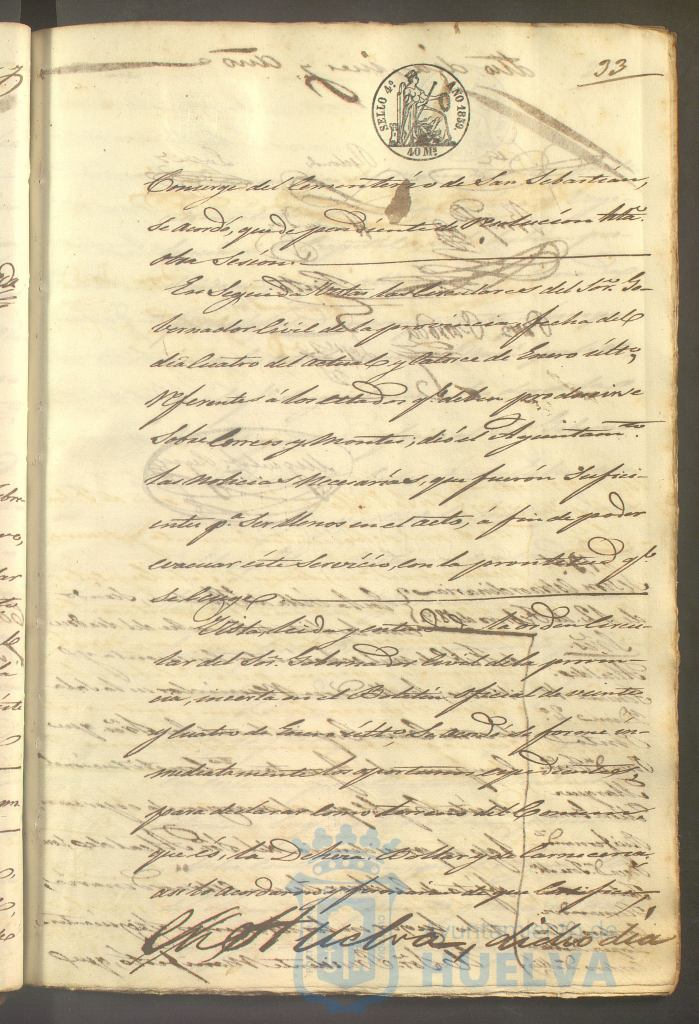 33
SELLO 4º AÑO 1859.
40 Ms
Conserge del Cementerio de San Sebastian,
se acordó, quede pendiente de resolucion hta.
otra Sesion.
En Seguida Vistas las Circulares del Sor. Go-
bernador Civil de la provincia fecha del
dia Cuatro del actual y Catorce de Enero últo,
referentes á los estados qe. deben producirse
sobre Correos y Montes, dió el Ayuntamto.
las noticias necesarias, que fueron Sufici-
entes pa. ser llenos en el acto, á fin de poder
evacuar este Servicio, con la prontitud qe.
se exige.
Vista, leida y la Circu-
lar del Sor. Gobernador Civil de la provin-
cia, inserta en el Boletin oficial de veinte
y Cuatro de Enero últo; Se acordó se forme in-
mediatamente los oportunos expedientes,
para declarar como terreno del Comun
que és, la Dehesa Bollar y de Carniceria.
asi lo acordaron y firmaron de que Certifico,
En Huelva, dicho dia
Ayuntamiento de
HUELVA